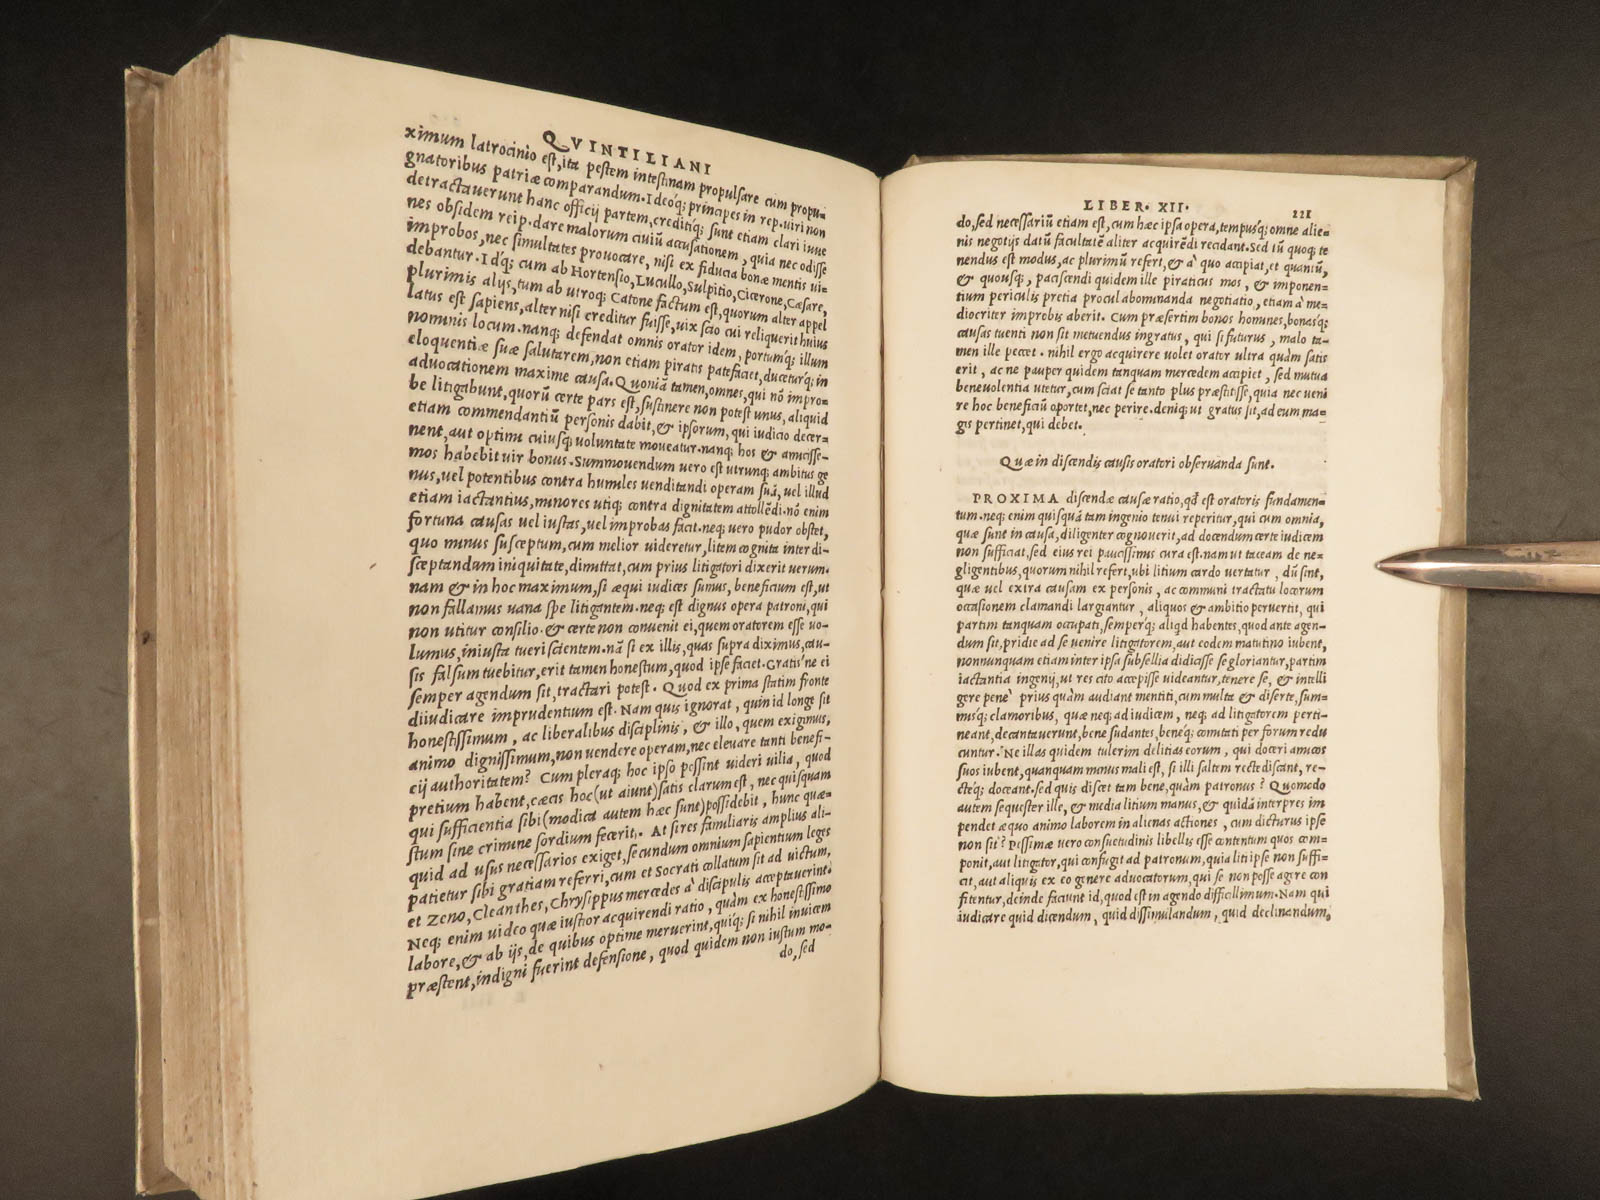 QVINTILIANI
ximum latrocinio est, ita pestem intestinam propulsare cum propu-
gnatoribus patriæ comparandum. Ideoq; principes in rep. uiri non
detractauerunt hanc officij partem, creditiq; sunt etiam clari iuue
nes obsidem reip. dare malorum ciuiũ accusationem, quia nec odisse
improbos, nec simultates prouocare, nisi ex fiducia bonæ mentis ui-
debantur. Idq; cum ab Hortensio, Lucullo, Sulpitio, Cicerone, Cæsare,
plurimis alijs, tum ab utroq; Catone factum est, quorum alter appel
latus est sapiens, alter nisi creditur fuisse, uix scio cui reliquerit huius
nominis locum. nanq; defendat omnis orator idem, portumq; illum
eloquentiæ suæ salutarem, non etiam piratis patefaciet, duceturq; in
aduocationem maxime causa. Quoniã tamen, omnes, qui nõ impro-
be litigabunt, quorũ certe pars est, sustinere non potest unus, aliquid
etiam commendantiũ personis dabit, & ipsorum, qui iudicio decer-
nent, aut optimi cuiusq; uoluntate moueatur. nanq; hos & amicisse-
mos habebit uir bonus. Summouendum uero est utrunq; ambitus ge
nus, uel potentibus contra humiles uenditandi operam suã, uel illud
etiam iactantius, minores utiq; contra dignitatem attollẽdi. nõ enim
fortuna causas uel iustas, uel improbas facit. neq; uero pudor obstet,
quo minus susceptum, cum melior uideretur, litem cognita inter di-
sceptandum iniquitate, dimittat, cum prius litigatori dixerit uerum.
nam & in hoc maximum, si æqui iudices sumus, beneficium est, ut
non fallamus uana spe litigantem. neq; est dignus opera patroni, qui
non utitur consilio. & certe non conuenit ei, quem oratorem esse uo-
lumus, iniusta tueri scientem. nã si ex illis, quas supra diximus, cau-
sis falsum tuebitur, erit tamen honestum, quod ipse faciet. Gratis'ne ei
semper agendum sit, tractari potest. Quod ex prima statim fronte
diiudicare imprudentium est. Nam quis ignorat, quin id longe sit
honestissimum, ac liberalibus disciplinis, & illo, quem exigimus,
animo dignissimum, non uendere operam, nec eleuare tanti benefi-
cij authoritatem? Cum pleraq; hoc ipso possint uideri uilia, quod
pretium habent, cæcis hoc (ut aiunt) satis clarum est, nec quisquam
qui sufficientia sibi (modica autem hæc sunt) possidebit, hunc quæ-
stum sine crimine sordium fecerit. At si res familiaris amplius ali-
quid ad usus necessarios exiget, secundum omnium sapientium leges
patietur sibi gratiam referri, cum et Socrati collatum sit ad uictum,
et Zeno, Cleanthes, Chrysippus mercedes à discipulis acceptauerint.
Neq; enim uideo quæ iustior acquirendi ratio, quàm ex honestissimo
labore, & ab ijs, de quibus optime meruerint, quiq; si nihil inuicem
præstent, indigni fuerint defensione, quod quidem non iustum mo-
do, sed
LIBER. XII. 221
do, sed necessariũ etiam est, cum hæc ipsa opera, tempusq; omne alie-
nis negotijs datũ facultatẽ aliter acquirẽdi recidant. Sed iũ quoq; te
nendus est modus, ac plurimũ refert, & à quo accipiat, et quantũ,
& quousq;, paciscendi quidem ille piraticus mos, & imponen-
tium periculis pretia procul abominanda negotiatio, etiam à me-
diocriter improbis aberit. Cum præsertim bonos homines, bonasq;
causas tuenti non sit metuendus ingratus, qui si futurus, malo ta-
men ille peccet. nihil ergo acquirere uolet orator ultra quàm satis
erit, ac ne pauper quidem tanquam mercedem accipiet, sed mutua
beneuolentia utetur, cum sciat se tanto plus præstitisse, quia nec ueni
re hoc beneficiũ oportet, nec perire. deniq; ut gratus sit, ad eum ma-
gis pertinet, qui debet.
Quæ in discendis causis oratori obseruanda sunt.
PROXIMA discendæ causæ ratio, qđ est oratoris fundamen-
tum. neq; enim quisquã tam ingenio tenui reperitur, qui cum omnia,
quæ sunt in causa, diligenter cognouerit, ad docendum certe iudicem
non sufficiat, sed eius rei paucissimis cura est. nam ut taceam de ne-
gligentibus, quorum nihil refert, ubi litium cardo uertatur, dũ sint,
quæ uel extra causam ex personis, ac communi tractatu locorum
occasionem clamandi largiantur, aliquos & ambitio peruertit, qui
partim tanquam occupati, semperq; aliqd habentes, quod ante agen-
dum sit, pridie ad se uenire litigatorem, aut eodem matutino iubent,
nonnunquam etiam inter ipsa subsellia didicisse se gloriantur, partim
iactantia ingenij, ut res cito accepisse uideantur, tenere se, & intelli
gere penè prius quàm audiant mentiti, cum multa & diserte, sum-
misq; clamoribus, quæ neq; ad iudicem, neq; ad litigatorem perti-
neant, decantauerunt, bene sudantes, beneq; comitati per forum redu
cuntur. Ne illas quidem tulerim delitias eorum, qui doceri amicos
suos iubent, quanquam minus mali est, si illi saltem recte discant, re-
cteq; doceant. sed quis discet tam bene, quàm patronus? Quomodo
autem sequester ille, & media litium manus, & quidã interpres im
pendet æquo animo laborem in alienas actiones, cum dicturus ipse
non sit? Pessimæ uero consuetudinis libellis esse contentum quos com-
ponit, aut litigator, qui confugit ad patronum, quia liti ipse non suffi-
cit, aut aliquis ex eo genere aduocatorum, qui se non posse agere con
fitentur, deinde faciunt id, quod est in agendo difficillimum. Nam qui
iudicare quid dicendum, quid dissimulandum, quid declinandum,